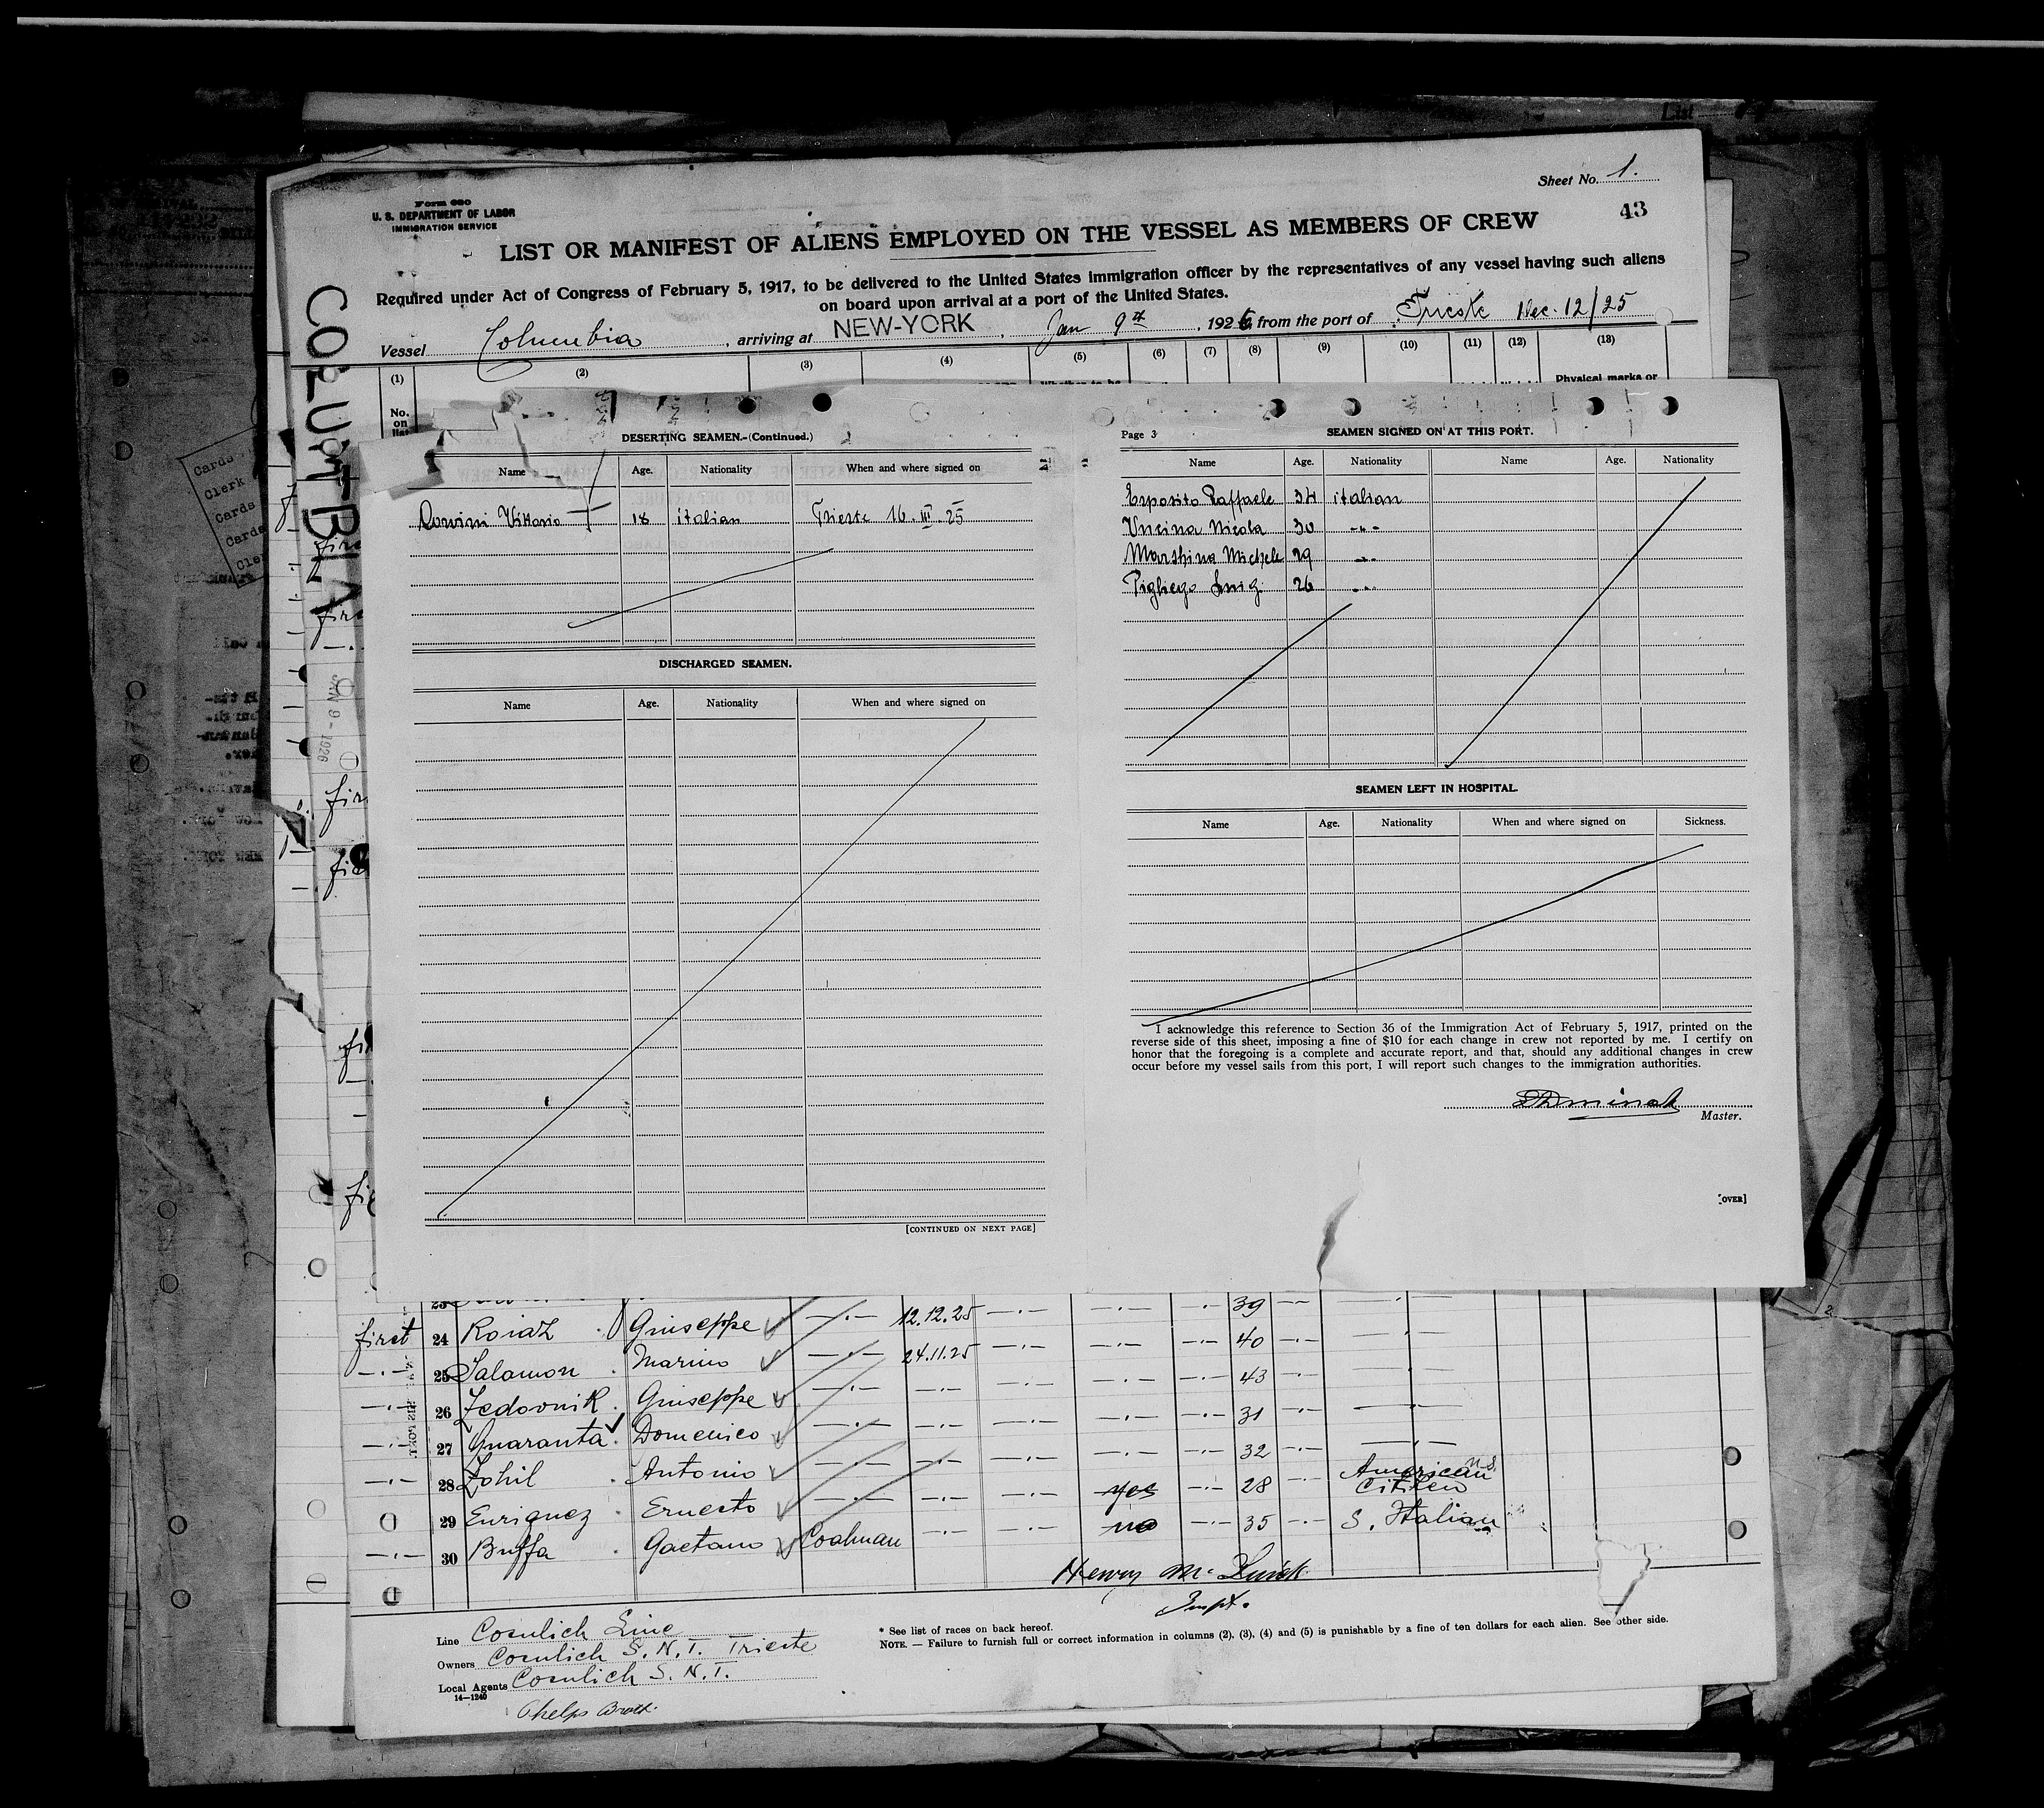 List
Sheet No. 1.
43
Form 680
U. S. DEPARTMENT OF LABOR
IMMIGRATION SERVICE
LIST OR MANIFEST OF ALIENS EMPLOYED ON THE VESSEL AS MEMBERS OF CREW
Required under Act of Congress of February 5, 1917, to be delivered to the United States immigration officer by the representatives of any vessel having such aliens
on board upon arrival at a port of the United States.
Vessel Columbia, arriving at NEW-YORK, Jan 9th, 1926, from the port of Trieste Dec. 12/25
(1) (2) (3) (4) (5) (6) (7) (8) (9) (10) (11) (12) (13)
Physical marks or
No.
on
list
COLUMBIA
JAN 9 - 1926
Cards
Clerk
Cards
Cards
Cler
DESERTING SEAMEN.-(Continued.)
Name Age. Nationality When and where signed on
Vittorio 18 italian Trieste 16. III. 25
DISCHARGED SEAMEN.
Name Age. Nationality When and where signed on
[CONTINUED ON NEXT PAGE]
Page 3
SEAMEN SIGNED ON AT THIS PORT.
Name Age. Nationality Name Age. Nationality
Esposito Raffaele 34 italian
Uncina Nicola 30 -"-
Michele 29 -"-
Luigi 26 -"-
SEAMEN LEFT IN HOSPITAL.
Name Age. Nationality When and where signed on Sickness.
I acknowledge this reference to Section 36 of the Immigration Act of February 5, 1917, printed on the
reverse side of this sheet, imposing a fine of $10 for each change in crew not reported by me. I certify on
honor that the foregoing is a complete and accurate report, and that, should any additional changes in crew
occur before my vessel sails from this port, I will report such changes to the immigration authorities.
Master.
[OVER]
23 39
first 24 Roiaz Giuseppe 12.12.25 40
25 Salamon Marino 24.11.25 43
26 Zedovnik Giuseppe 31
27 Quaranta Domenico 32
28 Zohil Antonio yes 28 American Citizen
29 Enriquez Ernesto no 35 S. Italian
30 Buffa Gaetano Coalman
Henry Mc
Inspt.
Line Cosulich Line
Owners Cosulich S. N. T. Trieste
Local Agents Cosulich S. N. T.
14—1240
Phelps Broth.
* See list of races on back hereof.
NOTE. — Failure to furnish full or correct information in columns (2), (3), (4) and (5) is punishable by a fine of ten dollars for each alien. See other side.